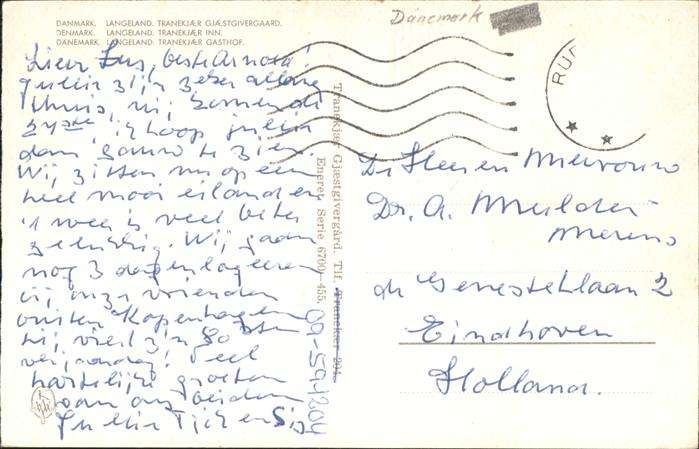 DANMARK. LANGELAND. TRANEKJÆR GJÆSTGIVERGAARD.
DENMARK. LANGELAND. TRANEKJÆR INN.
DÄNEMARK. LANGELAND. TRANEKJÆR GASTHOF.
Dänemark
RUD
Lieve Lus, beste Arnold!
Jullie zijn zeker allang
thuis, wij komen de
ik hoop jullie
dan gauw te zien.
Wij zitten nu op een
heel mooi eiland en
't weer is veel beter
gelukkig. Wij gaan
nog 3 dagen logeeren
bij onze vrienden
buiten Kopenhagen
hij viert z'n 80sten
verjaardag! Veel
hartelijke groeten
van ons beiden
Jullie Tich en Sis
Tranekjær Gjæstgivergård Tlf. Tranekær 204.
Eneret. Serie 6700-455.
09-591204
De Heer en Mevrouw
Dr. A. Mulder
de Genestetlaan 2
Eindhoven
Holland.